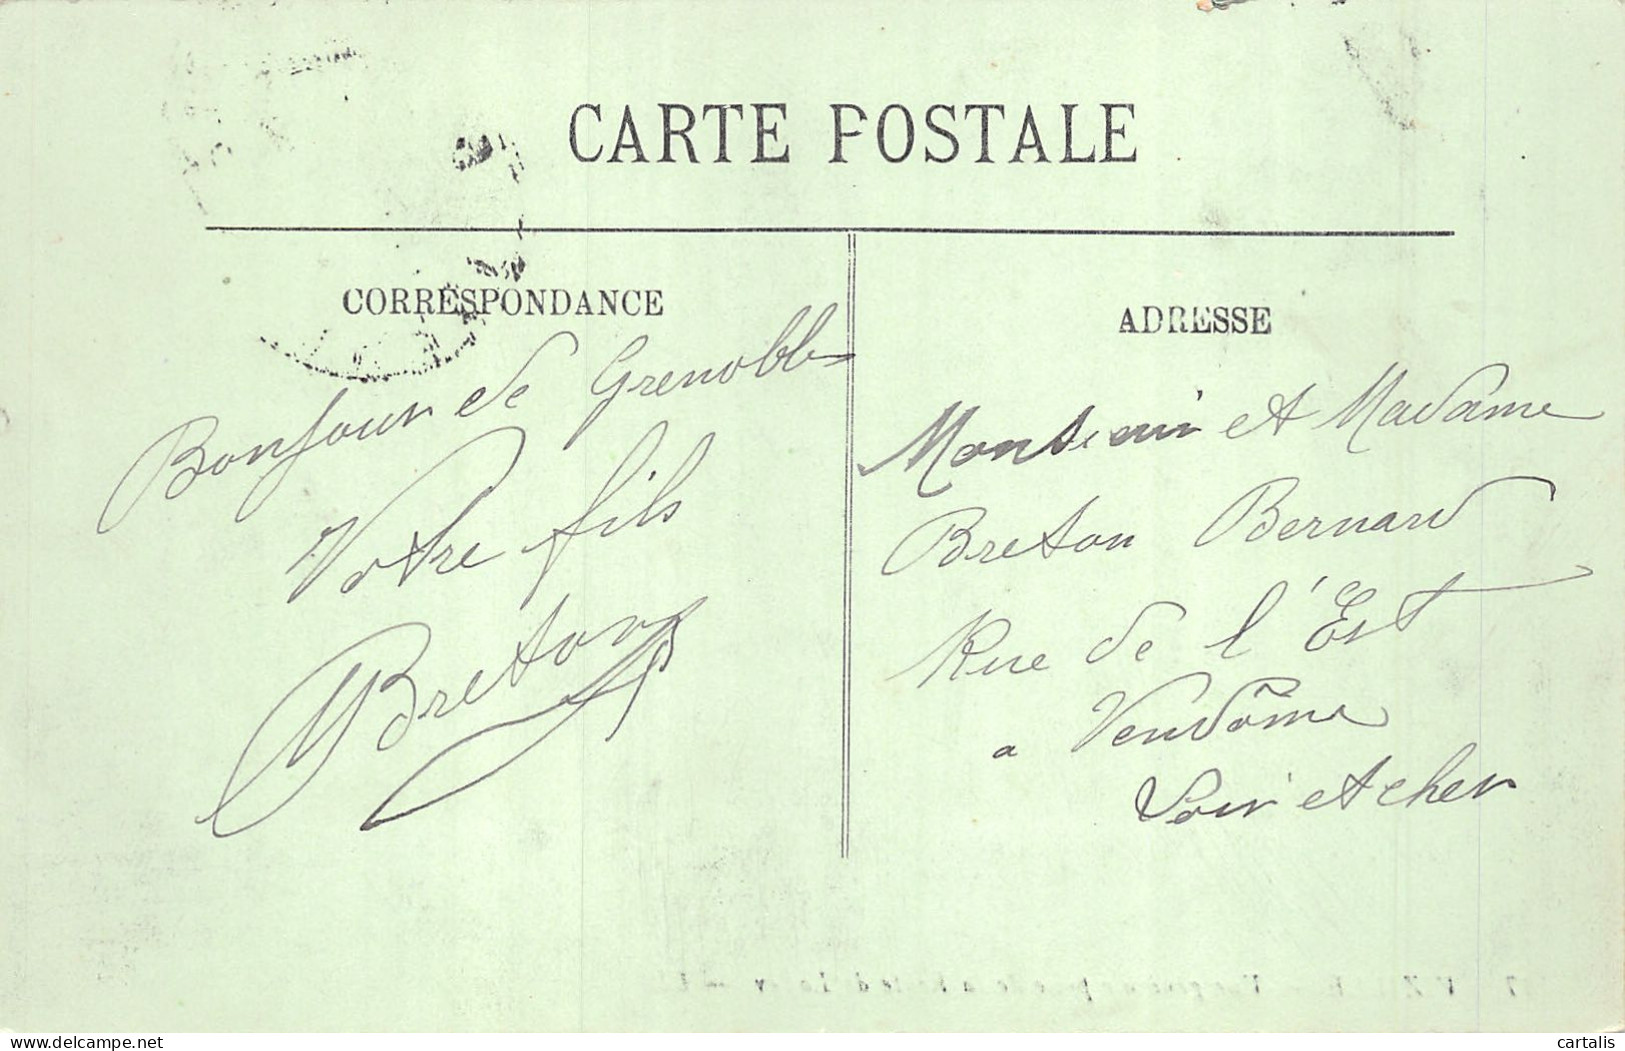 CARTE POSTALE
CORRESPONDANCE
Bonjour de Grenoble
Votre fils
Breton
ADRESSE
Monsieur et Madame
Breton Bernard
Rue de l'Est
a Vendôme
Loir et cher
www.delcampe.net
cartalis